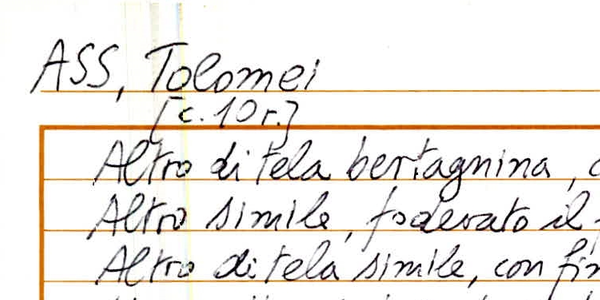 ASS, Tolomei
[c. 10 r.]
Altro di tela bertagnina,
Altro simile, foderato il
Altro di tela simile, con fin